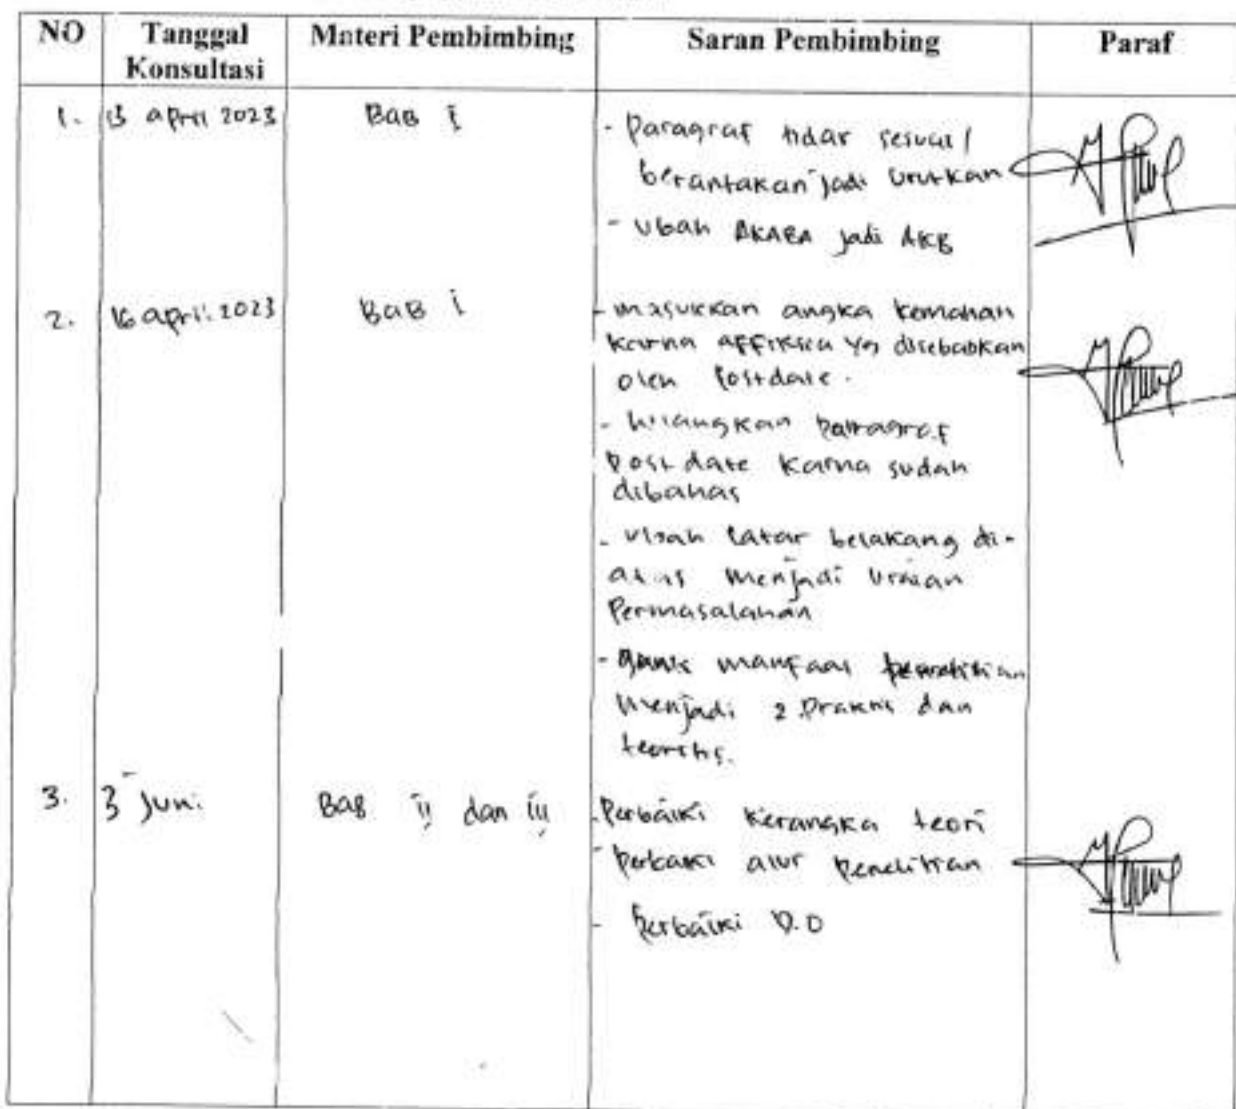 NO Tanggal Konsultasi Materi Pembimbing Saran Pembimbing Paraf
1. 13 april 2023 BAB I - Paragraf tidak sesuai /
berantakan jadi urutkan
- Ubah AKABA jadi AKB
2. 16 april 2023 BAB I - masukkan angka kematian
karna affiksia yg disebabkan
oleh Postdate.
- hilangkan paragraf
post date karna sudah
dibahas
- Ubah latar belakang di-
atas menjadi uraian
Permasalahan
- ganti manfaat penelitian
menjadi 2. Praktis dan
teoritis.
3. 3 Juni BAB II dan III - Perbaiki kerangka teori
- Perbaiki alur Penelitian
- Perbaiki D.O